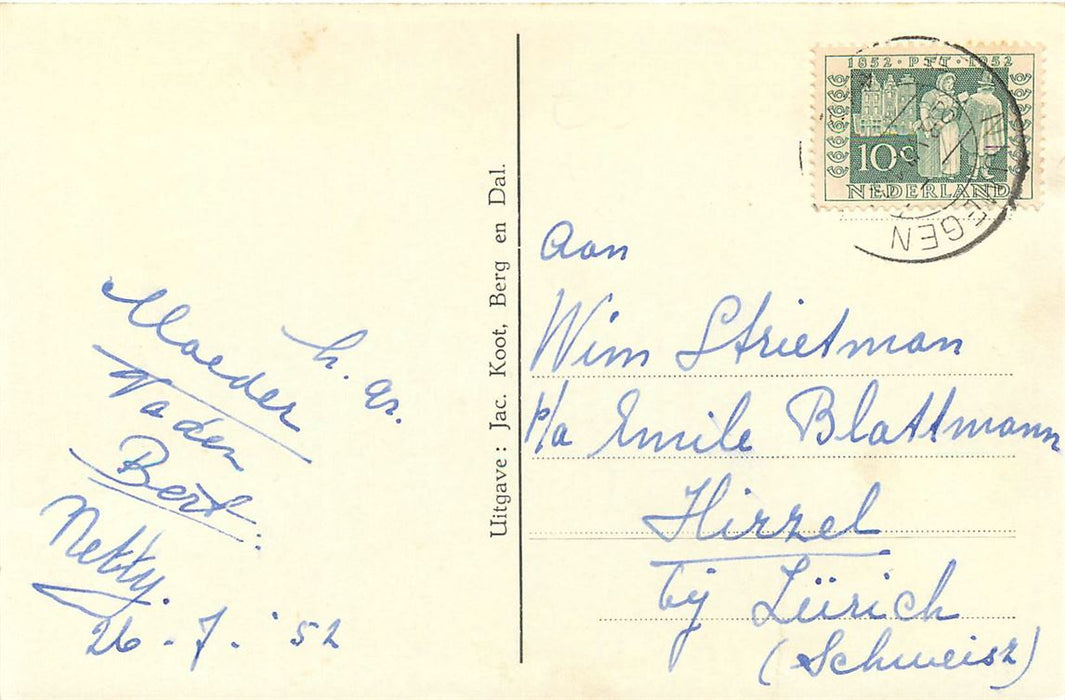 h. gr.
Moeder
Vader
Bert
Netty.
26 - 7 - '52
Uitgave: Jac. Koot, Berg en Dal.
1852 · PTT · 1952
10 c
NEDERLAND
NIJMEGEN
Aan
Wim Strietman
p/a Emile Blattmann
Hirzel
bij Zürich
(Schweisz)